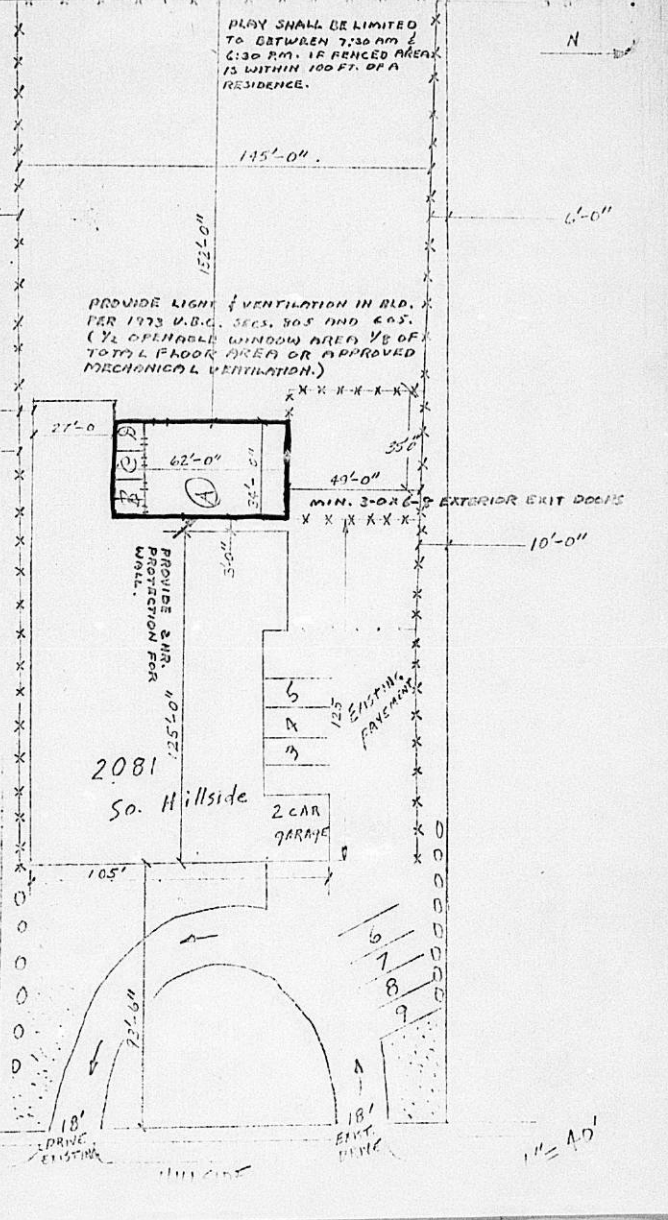 PLAY SHALL BE LIMITED
TO BETWEEN 7:30 AM &
6:30 P.M. IF FENCED AREA
IS WITHIN 100 FT. OF A
RESIDENCE.
N
145'-0"
6'-0"
152'-0"
PROVIDE LIGHT & VENTILATION IN BLD.
PER 1973 U.B.C. SECS. 805 AND 605.
(1/2 OPENABLE WINDOW AREA 1/8 OF
TOTAL FLOOR AREA OR APPROVED
MECHANICAL VENTILATION.)
27'-0
B C D
62'-0"
A
34'-0"
35'0"
49'-0"
MIN. 3-0X6-8 EXTERIOR EXIT DOORS
10'-0"
3'-0"
PROVIDE 2 HR.
PROTECTION FOR
WALL.
125'-0"
5
4
3
125'
EXISTING
PAVEMENT
2081
So. Hillside
2 CAR
GARAGE
105'
6
7
8
9
93'-6"
18'
DRIVE
EXISTING
18'
EXIST.
DRIVE
HILLSIDE
1"=40'